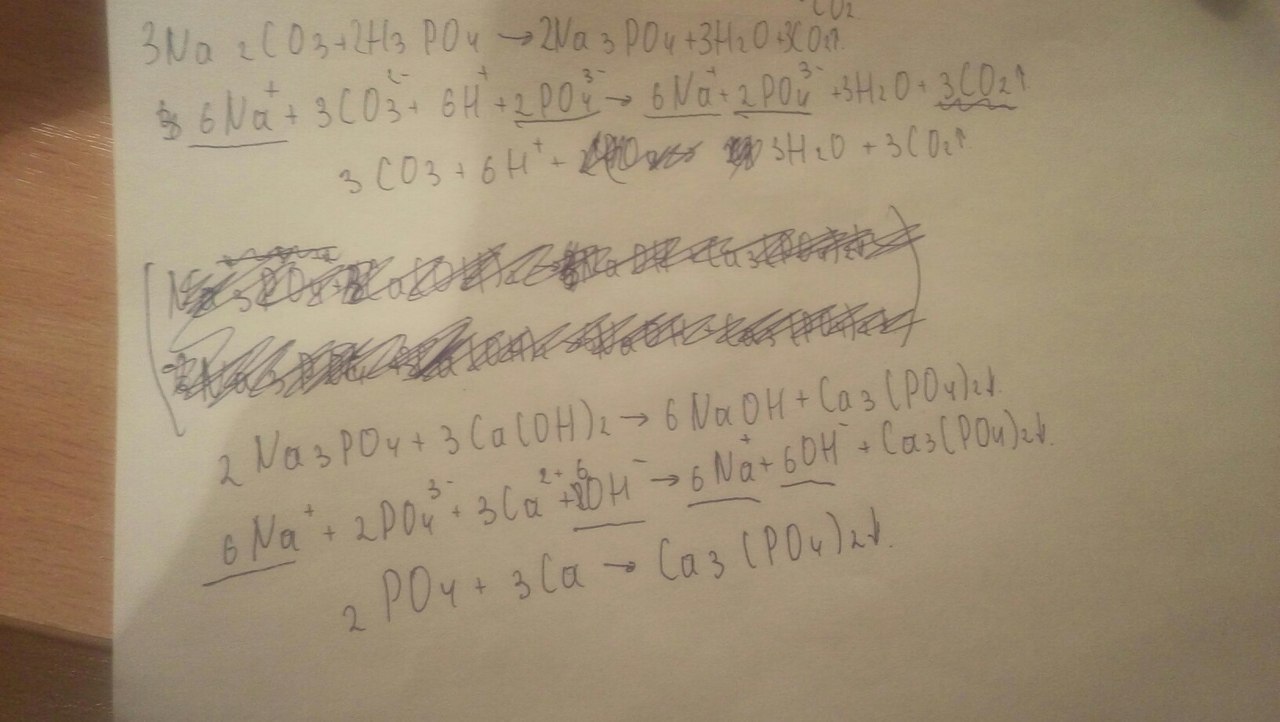 CO2
3Na2CO3+2H3PO4→2Na3PO4+3H2O+3CO2↑
6Na⁺+3CO3²⁻+6H⁺+2PO4³⁻→6Na⁺+2PO4³⁻+3H2O+3CO2↑
3CO3+6H⁺+ 3H2O+3CO2↑
2Na3PO4+3Ca(OH)2→6NaOH+Ca3(PO4)2↓
6Na⁺+2PO4³⁻+3Ca²⁺+6OH⁻→6Na⁺+6OH⁻+Ca3(PO4)2↓
2PO4+3Ca→Ca3(PO4)2↓